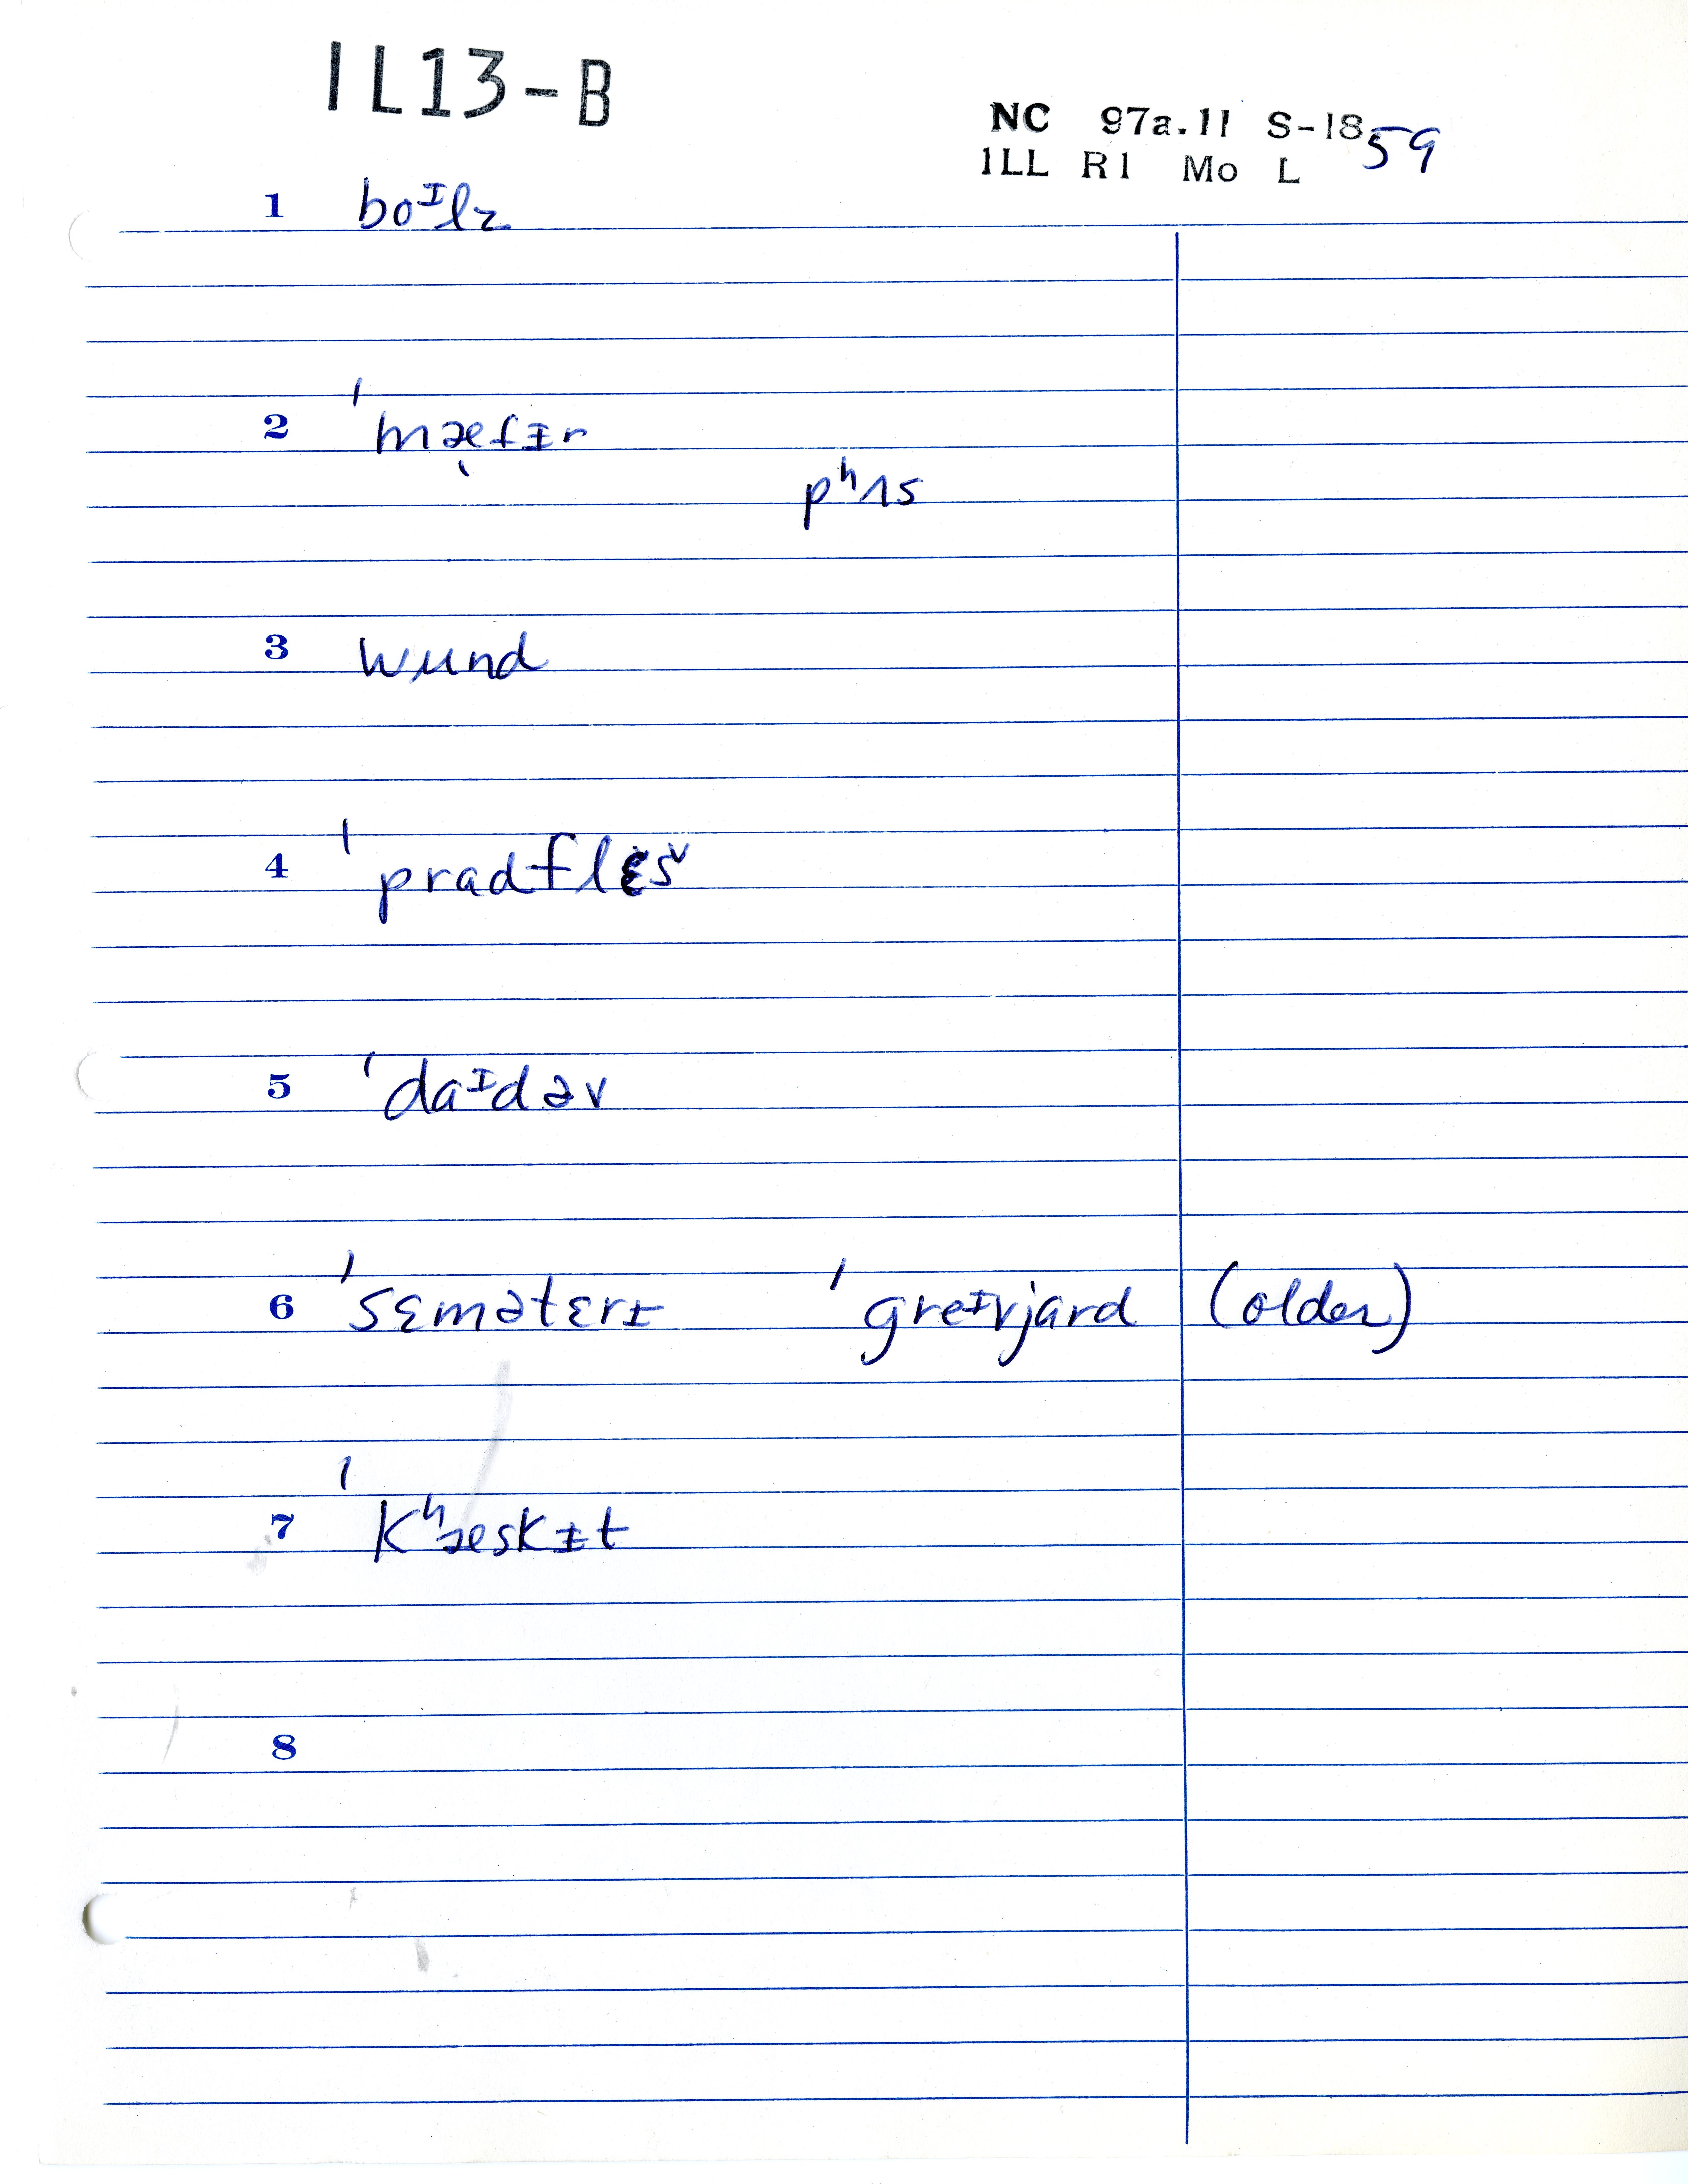 IL13-B
NC 97a.11 S-18 59
ILL R1 Mo L
1 boᶦlz
2 ˈmæfɨr
pʰʌs
3 wund
4 ˈpradflɛš
5 ˈdaᶦdəv
6 ˈsɛmətɛrɨ ˈgreɨvjard (older)
7 ˈkʰæskɨt
8